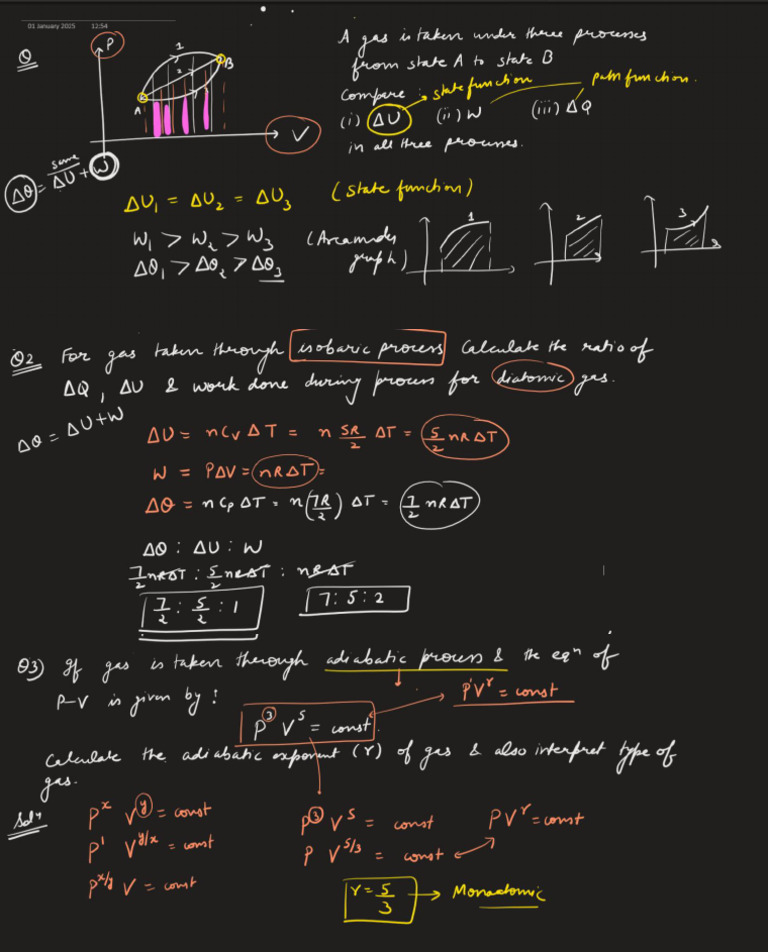 01 January 2025 12:54
Q
P
1
2
3
A
B
V
A gas is taken under three processes
from state A to state B
Compare : state function path function.
(i) ΔU (ii) W (iii) ΔQ
in all three processes.
same
ΔQ = ΔU + W
ΔU₁ = ΔU₂ = ΔU₃ (state function)
W₁ > W₂ > W₃ (Area under
graph)
ΔQ₁ > ΔQ₂ > ΔQ₃
1
2
3
Q2 For gas taken through isobaric process Calculate the ratio of
ΔQ, ΔU & work done during process for diatomic gas.
ΔQ = ΔU + W
ΔU = nCᵥΔT = n 5R/2 ΔT = 5/2 nRΔT
W = PΔV = nRΔT =
ΔQ = nCₚΔT = n(7R/2) ΔT = 7/2 nRΔT
ΔQ : ΔU : W
7/2 nRΔT : 5/2 nRΔT : nRΔT
7/2 : 5/2 : 1 7 : 5 : 2
Q3) If gas is taken through adiabatic process & the eqⁿ of
P-V is given by :
P¹Vʳ = const
P³ V⁵ = const.
Calculate the adiabatic exponent (r) of gas & also interpret type of
gas.
Solⁿ
Pˣ Vʸ = const
P¹ V^y/x = const
P^x/y V = const
P³ V⁵ = const PVʳ = const
P V^5/3 = const
r = 5/3 → Monoatomic